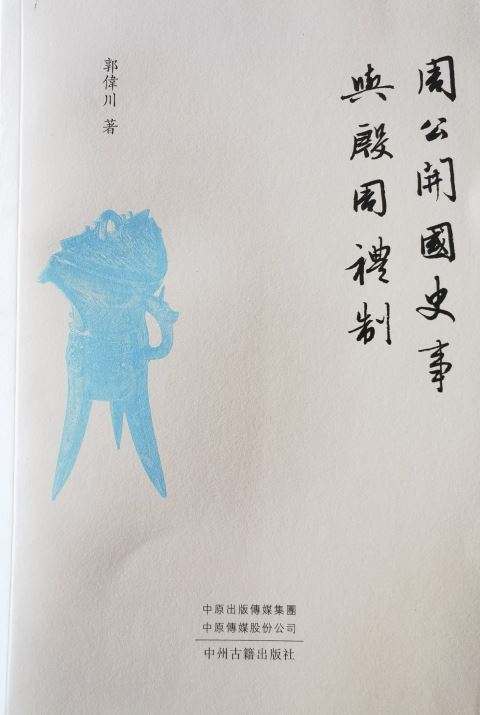 周公開國史事
與殷周禮制
郭偉川 著
中原出版傳媒集團
中原傳媒股份公司
中州古籍出版社